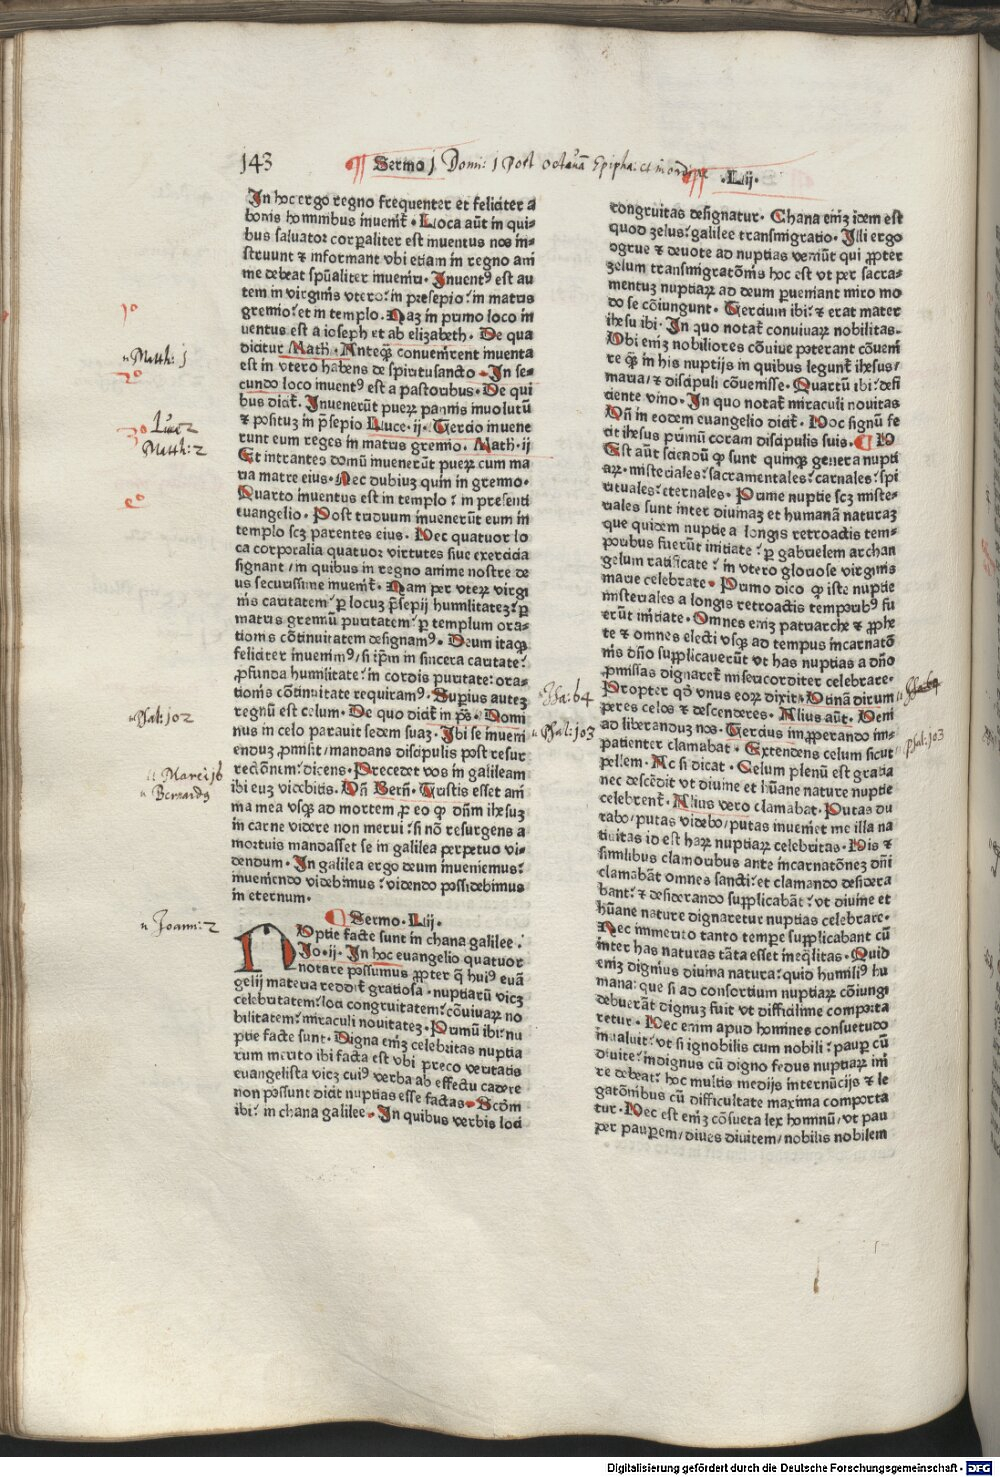 143
Sermo j Dom: j Post octauā Epipha:
·Lij·
In hoc ergo regno frequenter et feliciter a
bonis hominibus inuenit̄ · Loca aūt in qui-
bus saluator corꝑaliter est inuentus nos in-
struunt ⁊ informant vbi etiam in regno ani
me debeat spūaliter inueniri · Inuentꝰ est au
tem in virginis vtero: in presepio: in matris
gremio: et in templo. Naz in primo loco in
uentus est a ioseph et ab elizabeth. De qua
dicitur Math̄ · Anteq̄ꝫ conuenirent inuenta
est in vtero habens de spiritusancto · In se-
cundo loco inuentꝰ est a pastoribus · De qui
bus dicit̄. Inuenerūt pueꝝ pannis inuolutū
⁊ positus in p̄sepio Luce · ij · Tercio inuene
runt eum reges in matris gremio. Math · ij
Et intrantes domū inuenerūt pueꝝ cum ma
ria matre eius · Nec dubiuꝫ quin in gremio ·
Quarto inuentus est in templo: in presenti
euangelio · Post triduum inuenerūt eum in
templo scꝫ parentes eius. Hec quatuor lo
ca corporalia quatuor virtutes siue exercicia
signant / in quibus in regno anime nostre de
us securissime inuenit̄ · Nam per vteꝝ virgi
nis caritatem: ꝑ locuꝫ p̄sepij humilitateꝫ: ꝑ
matris gremiū puritatem: ꝑ templum ora-
tionis cōtinuitatem designamꝰ · Deum itaqꝫ
feliciter inuenimꝰ / si ip̄m in sincera caritate:
ꝓfunda humilitate: in cordis puritate: ora-
tionis cōtinuitate requiramꝰ · Supius auteꝫ
regnū est celum · De quo dicit̄ in pš · Domi
nus in celo parauit sedem suaꝫ · Ibi se inueni
enduꝫ ꝓmisit / mandans discipulis post resur
rectōnem: dicens · Precedet vos in galileam
ibi euꝫ videbitis · Vñ Berñ · Tristis esset ani
ma mea vsqꝫ ad mortem ꝓ eo ꝙ dñm ihesuꝫ
in carne videre non merui: si nō resurgens a
mortuis mandasset se in galilea perpetuo vi-
dendum · In galilea ergo deum inueniemus:
inueniendo videbimus: videndo possidebimus
in eternum ·
Sermo · Lij ·
Nuptie facte sunt in chana galilee ·
Jo · ij · In hoc euangelio quatuor
notare possumus ꝓpter q̄ huiꝰ euā
gelij materia reddit̄ gratiosa · nuptiarū vicꝫ
celebritatem: loci congruitatem: cōuiuaꝝ no
bilitatem: miraculi nouitateꝫ · Primū ibi: nu
ptie facte sunt · Digna em̄ celebritas nuptia
rum merito ibi facta est vbi preco veritatis
euangelista vicꝫ cuiꝰ verba ab effectu cadere
non possunt dicit nuptias esse factas · Scdm̄
ibi: in chana galilee · In quibus verbis loci
congruitas designatur · Chana em̄ idem est
quod zelus: galilee transmigratio · Illi ergo
digne ⁊ deuote ad nuptias veniūt qui ꝓpter
zelum transmigratōnis hoc est vt per sacra-
mentuꝫ nuptiaꝝ ad deum ꝑueniant miro mo
do se cōiungunt · Tercium ibi: ⁊ erat mater
ihesu ibi · In quo notat̄ conuiuaꝝ nobilitas ·
Vbi em̄ nobiliores cōuiue poterant cōueni
re q̄ꝫ in his nuptijs in quibus legunt̄ ihesus /
maria / ⁊ discipuli cōuenisse · Quartū ibi: defi
ciente vino · In quo notat̄ miraculi nouitas
Vñ in eodem euangelio dicit̄ · Hoc signū fe
cit ihesus primū coram discipulis suis · ¶ Id
Est aūt sciendū ꝙ sunt quinqꝫ genera nupti
aꝝ · misteriales: sacramentales: carnales: spi
rituales: eternales · Prime nuptie scꝫ miste-
riales sunt inter diuinaꝫ et humanā naturaꝫ
que quidem nuptie a longis retroactis tem-
poribus fuerūt initiate: ꝑ gabrielem archan
gelum ratificate: in vtero gloriose virginis
marie celebrate · Primo dico ꝙ iste nuptie
misteriales a longis retroactis temporibꝰ fu
erūt initiate · Omnes em̄ patriarche ⁊ ꝓphe
te ⁊ omnes electi vsqꝫ ad tempus incarnatō
nis dño supplicauerūt vt has nuptias a dño
ꝓmissas dignaret̄ misericorditer celebrare ·
Propter qđ vnus eoꝝ dixit · Vtinā dirum
peres celos ⁊ descenderes · Alius aūt · Veni
ad liberanduꝫ nos · Tercius imꝓperando im-
patienter clamabat · Extendens celum sicut
pellem · Ac si dicat · Celum plenū est gratia
nec descēdit vt diuine et hūane nature nuptie
celebrent̄ · Alius vero clamabat · Putas du
rabo / putas videbo / putas inueniet me illa na
tiuitas id est haꝝ nuptiaꝝ celebritas · His ⁊
similibus clamoribus ante incarnatōneꝫ dñi
clamabāt omnes sancti: et clamando desidera
bant: ⁊ desiderando supplicabāt: vt diuine et
hūane nature dignaretur nuptias celebrare ·
Nec immerito tanto tempe supplicabant cū
inter has naturas tāta esset ineq̄litas · Quid
em̄ dignius diuina natura: quid humiliꝰ hu
mana: que si ad consortium nuptiaꝝ cōiungi
debuerāt dignuꝫ fuit vt difficilime comparta
retur · Nec enim apud homines consuetudo
inualuit: vt si ignobilis cum nobili: pauꝑ cū
diuite: indignus cū digno fedus nuptiaꝝ ini
re debeat: hoc multis medijs internūcijs ⁊ le
gatōnibus cū difficultate maxima comporta
tur · Nec est em̄ cōsueta lex hominū / vt pau
per pauꝑem / diues diuitem / nobilis nobilem
1º
Matth: j
2º
3º Luce 2
Matth: 2
Psal: 102
Marci 16
Bernardꝰ
Joann: 2
Isa: 64
Psal: 103
Isa: 64
Psal: 103
Digitalisierung gefördert durch die Deutsche Forschungsgemeinschaft - DFG